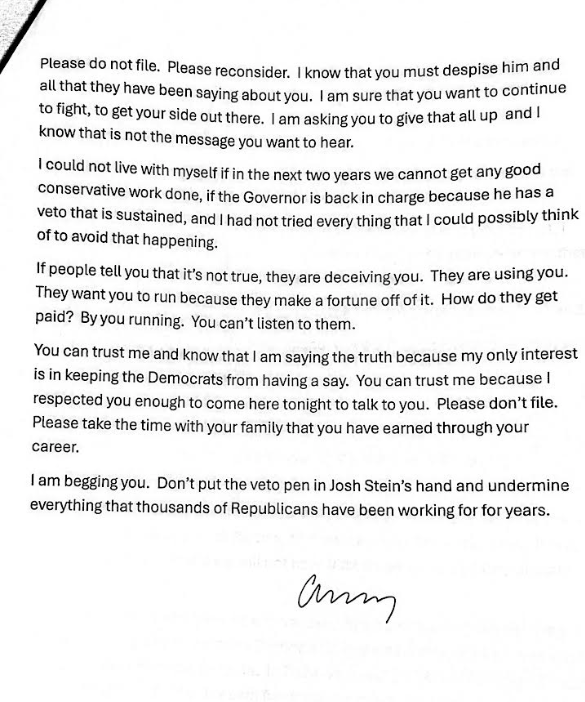 Please do not file. Please reconsider. I know that you must despise him and
all that they have been saying about you. I am sure that you want to continue
to fight, to get your side out there. I am asking you to give that all up and I
know that is not the message you want to hear.
I could not live with myself if in the next two years we cannot get any good
conservative work done, if the Governor is back in charge because he has a
veto that is sustained, and I had not tried every thing that I could possibly think
of to avoid that happening.
If people tell you that it's not true, they are deceiving you. They are using you.
They want you to run because they make a fortune off of it. How do they get
paid? By you running. You can't listen to them.
You can trust me and know that I am saying the truth because my only interest
is in keeping the Democrats from having a say. You can trust me because I
respected you enough to come here tonight to talk to you. Please don't file.
Please take the time with your family that you have earned through your
career.
I am begging you. Don't put the veto pen in Josh Stein's hand and undermine
everything that thousands of Republicans have been working for for years.